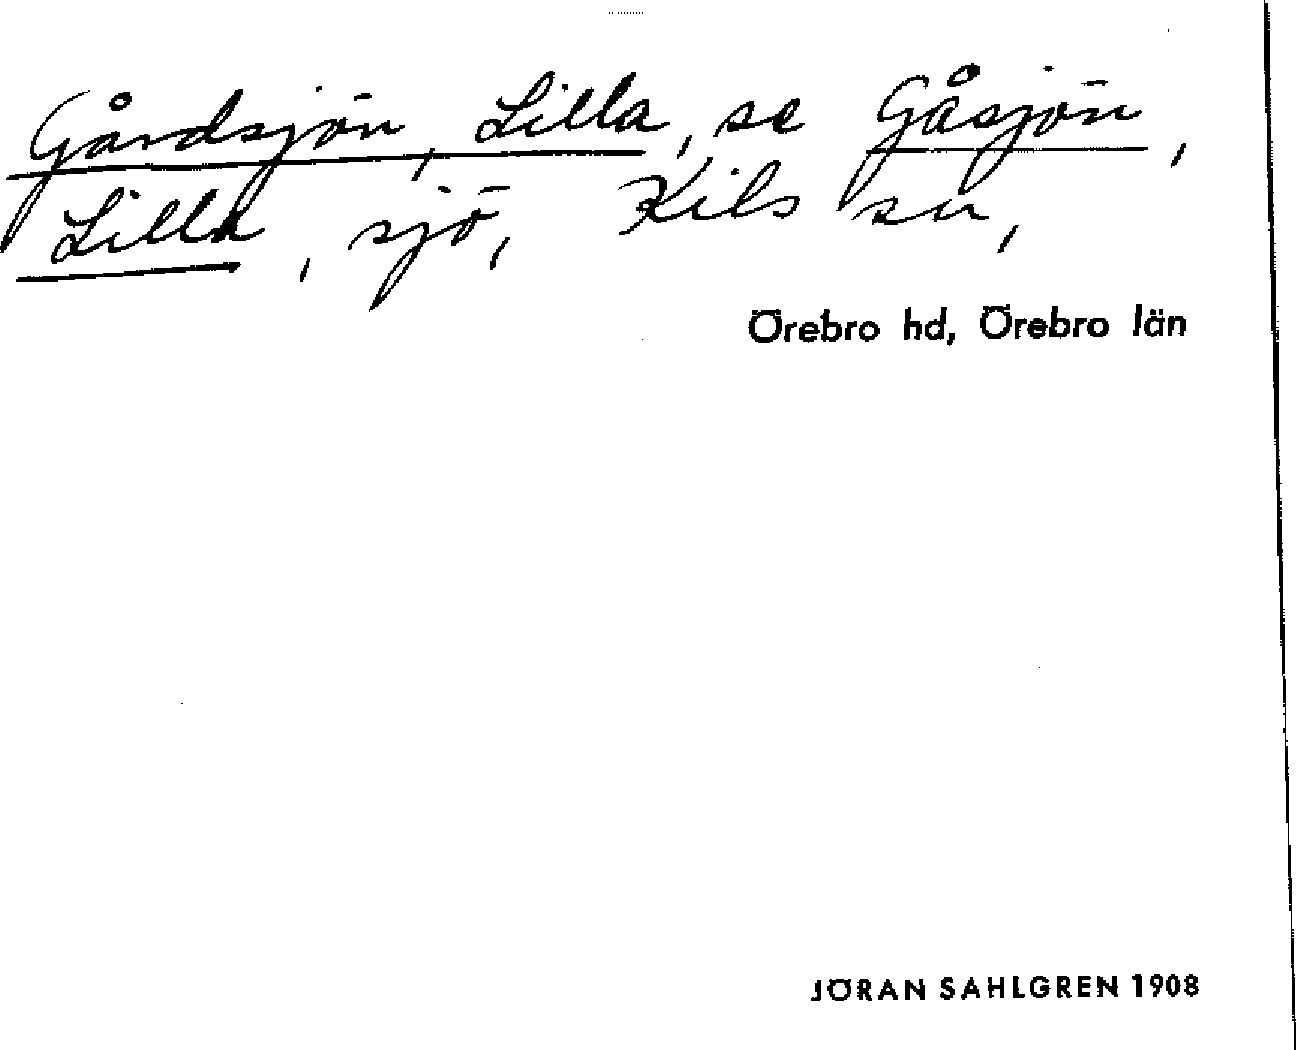 Gårdsjön, Lilla, se Gåsjön,
Lilla, sjö, Kils sn,
Örebro hd, Örebro län
JÖRAN SAHLGREN 1908